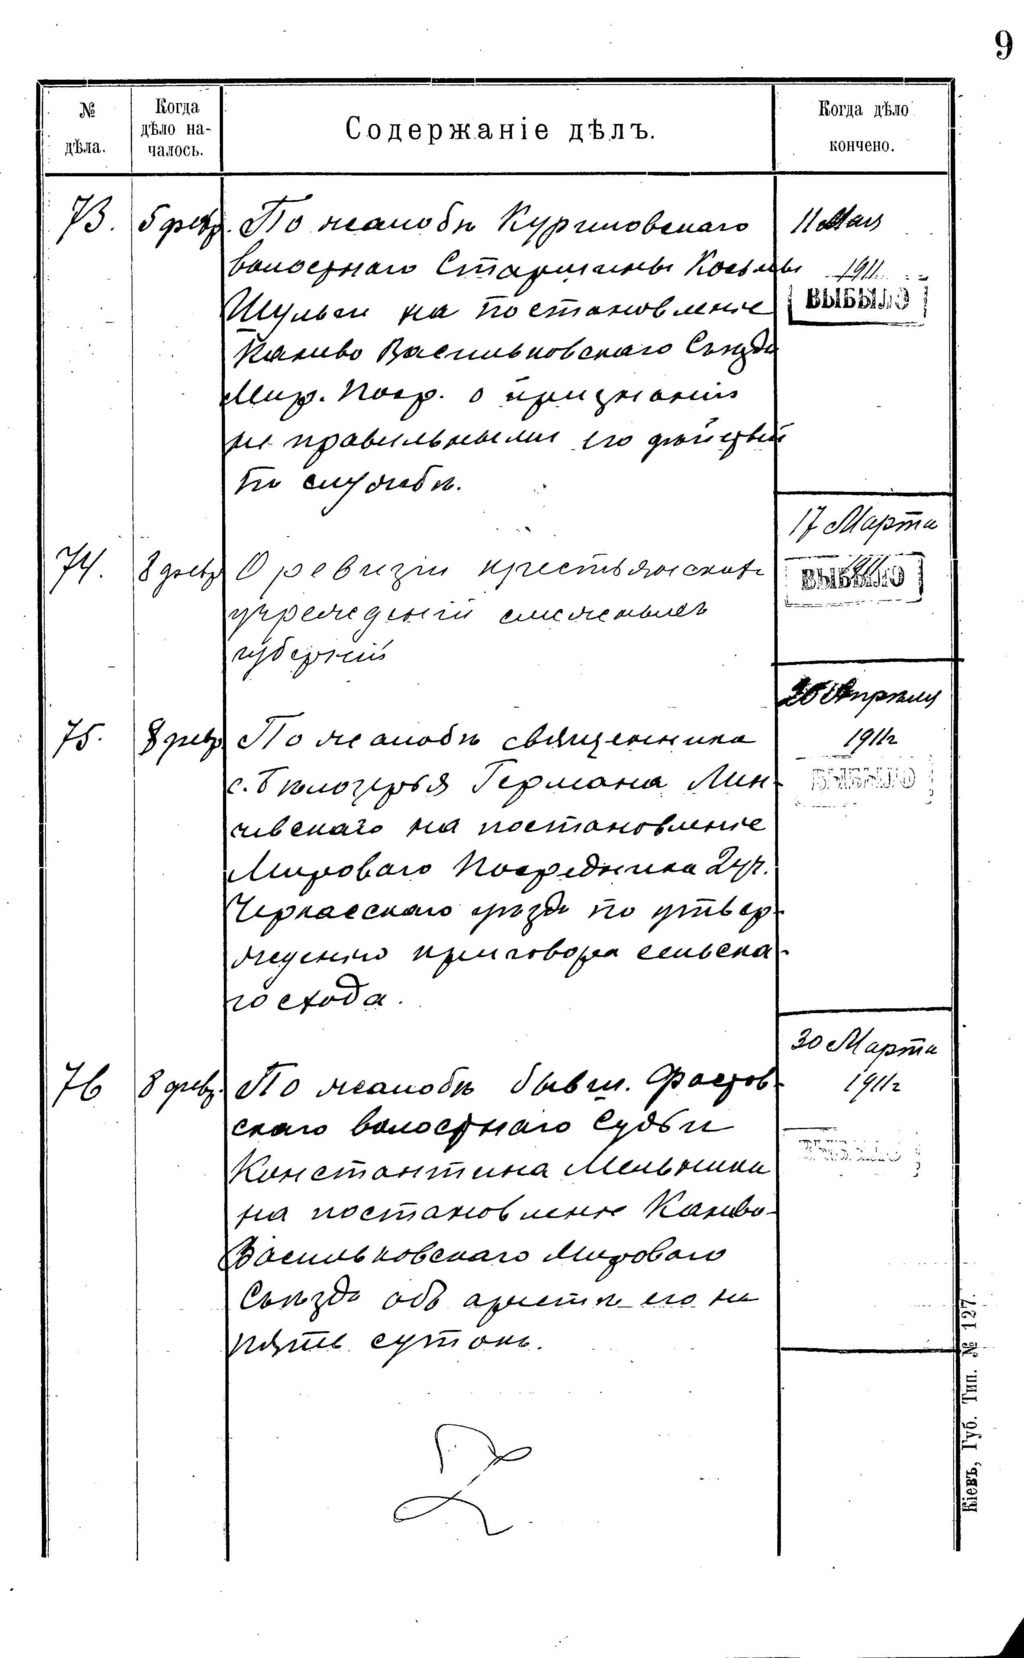 9
№ дѣла.
Когда дѣло на-
чалось.
Содержаніе дѣлъ.
Когда дѣло
кончено.
73.
5 февр.
По жалобѣ Куриловскаго
волостнаго Старшины Козьмы
Шульги на постановленіе
Канево Васильковскаго Съѣзда
Мир. Поср. о признаніи
не правильными его дѣйствій
по службѣ.
11 Мая
1911
ВЫБЫЛО
74.
8 февр
О ревизіи крестьянских
учрежденій смежныхъ
губерній
17 Марта
1911
ВЫБЫЛО
75.
8 февр
По жалобѣ священника
с. Бѣлозерья Германа Лин-
чевскаго на постановленіе
Мироваго Посредника 2 уч.
Черкасскаго уѣзда по утвер-
жденію приговора сельска-
го схода.
26 Апрѣля
1911 г
76
8 февр.
По жалобѣ бывш. Фастов-
скаго волостнаго Судьи
Константина Мельника
на постановленіе Канево-
Васильковскаго Мироваго
Съѣзда объ арестѣ его на
пять сутокъ.
30 Марта
1911 г
Кіевъ, Губ. Тип. № 127.